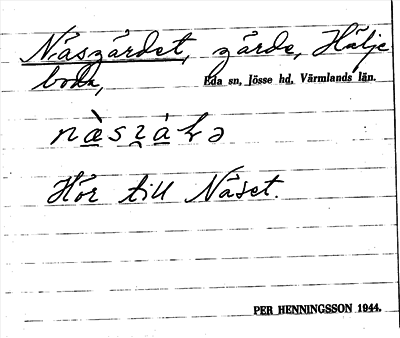 Näsgärdet, gärde, Hälje
boda, Eda sn, Jösse hd. Värmlands län.
Hör till Näset.
PER HENNINGSSON 1944.